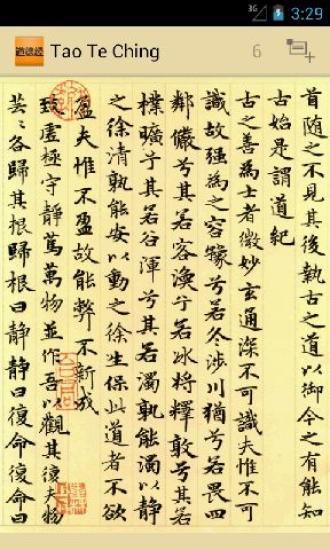 3G 3:29
道德經 Tao Te Ching 6
首隨之不見其後執古之道以御今之有能知
古始是謂道紀
古之善為士者微妙玄通深不可識夫惟不可
識故強為之容豫兮若冬涉川猶兮若畏四
鄰儼兮其若客渙兮若冰將釋敦兮其若
樸曠兮其若谷渾兮其若濁孰能濁以靜
之徐清孰能安以動之徐生保此道者不欲
盈夫惟不盈故能弊不新成
致虛極守靜篤萬物並作吾以觀其復夫物
芸〻各歸其根歸根曰靜靜曰復命復命曰